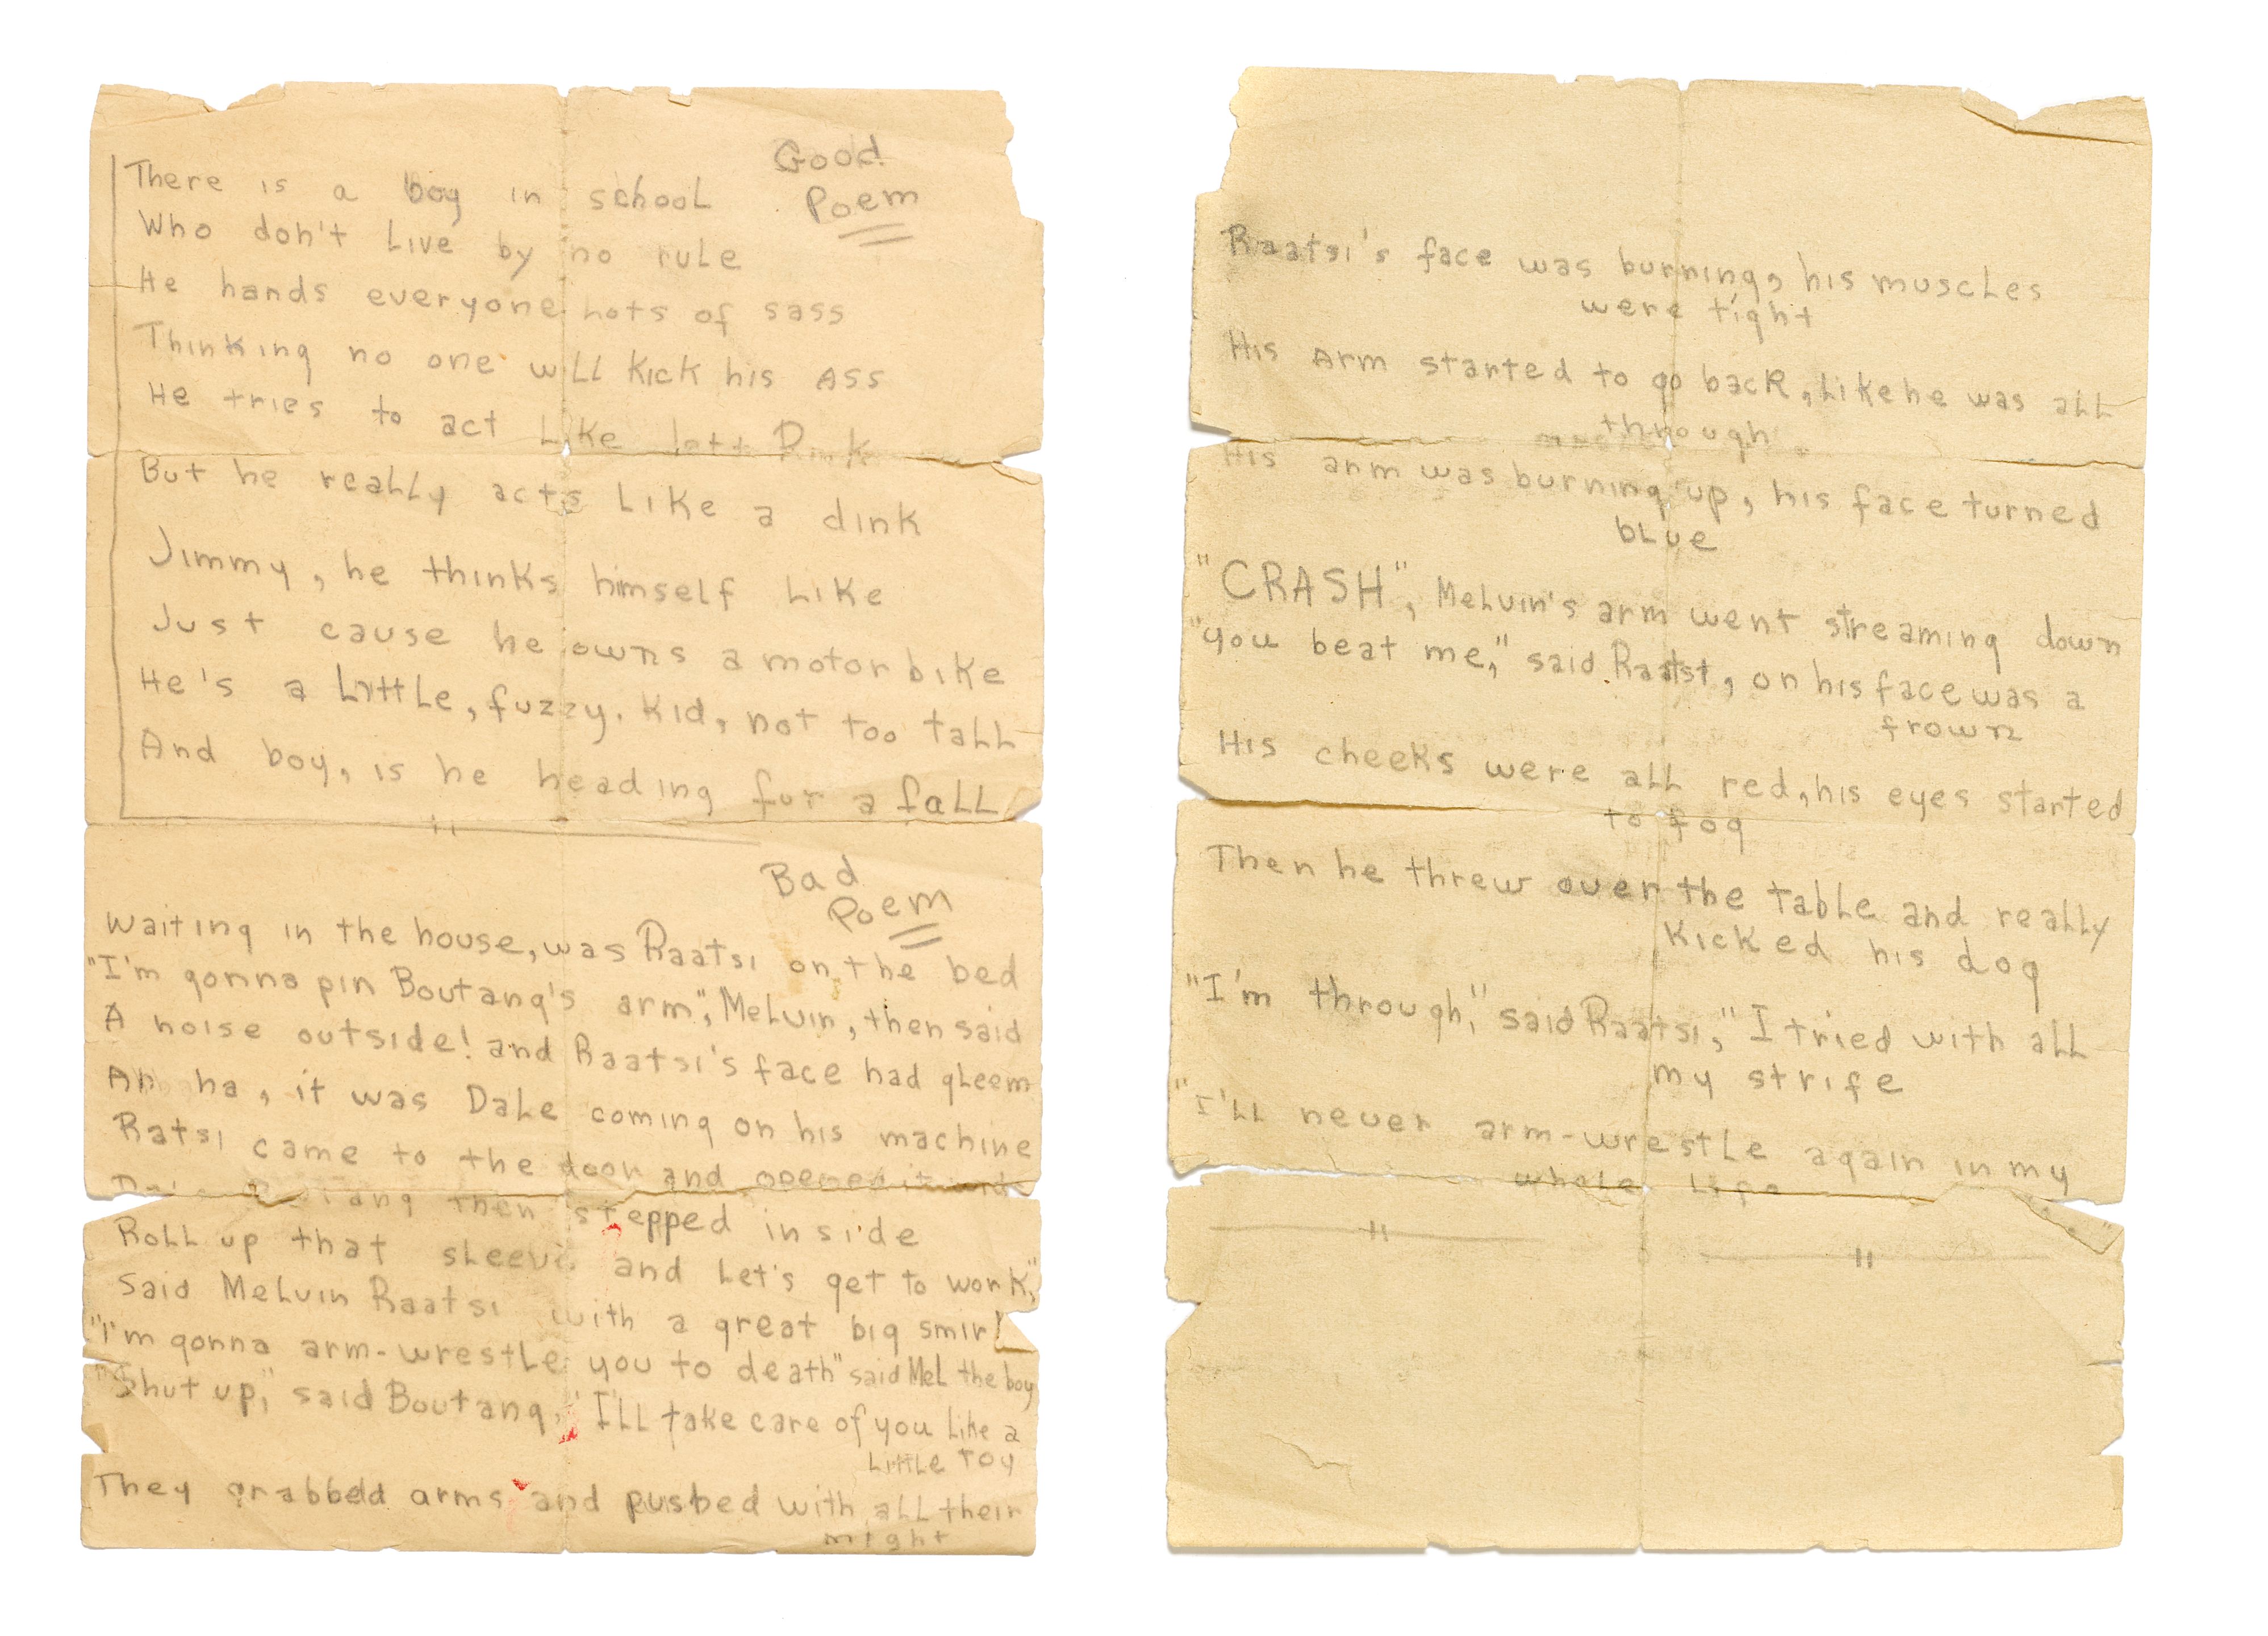 Good
Poem
There is a boy in school
Who don't Live by no rule
He hands everyone Lots of sass
Thinking no one will Kick his ASS
He tries to act Like
But he really acts Like a dink
Jimmy, he thinks himself Like
Just cause he owns a motor bike
He's a Little, fuzzy, Kid, not too tall
And boy, is he heading for a fall
Bad
Poem
Waiting in the house, was Raatsi on the bed
"I'm gonna pin Boutang's arm", Melvin, then said
A noise outside! and Raatsi's face had gleem
Ah ha, it was Dale coming on his machine
Ratsi came to the door and opened it
then stepped inside
Roll up that sleeve and Let's get to work,"
Said Melvin Raatsi with a great big smirk
"I'm gonna arm-wrestle you to death" said Mel the boy
"Shut up," said Boutang, "I'll take care of you Like a
Little toy
They grabbed arms and pushed with all their
might
Raatsi's face was burning, his muscles
were tight
His Arm started to go back, Like he was all
through
His arm was burning up, his face turned
blue
"CRASH", Melvin's arm went streaming down
"you beat me," said Raatsi, on his face was a
frown
His cheeks were all red, his eyes started
to fog
Then he threw over the table and really
Kicked his dog
"I'm through," said Raatsi, "I tried with all
my strife
"I'll never arm-wrestle again in my
whole Life